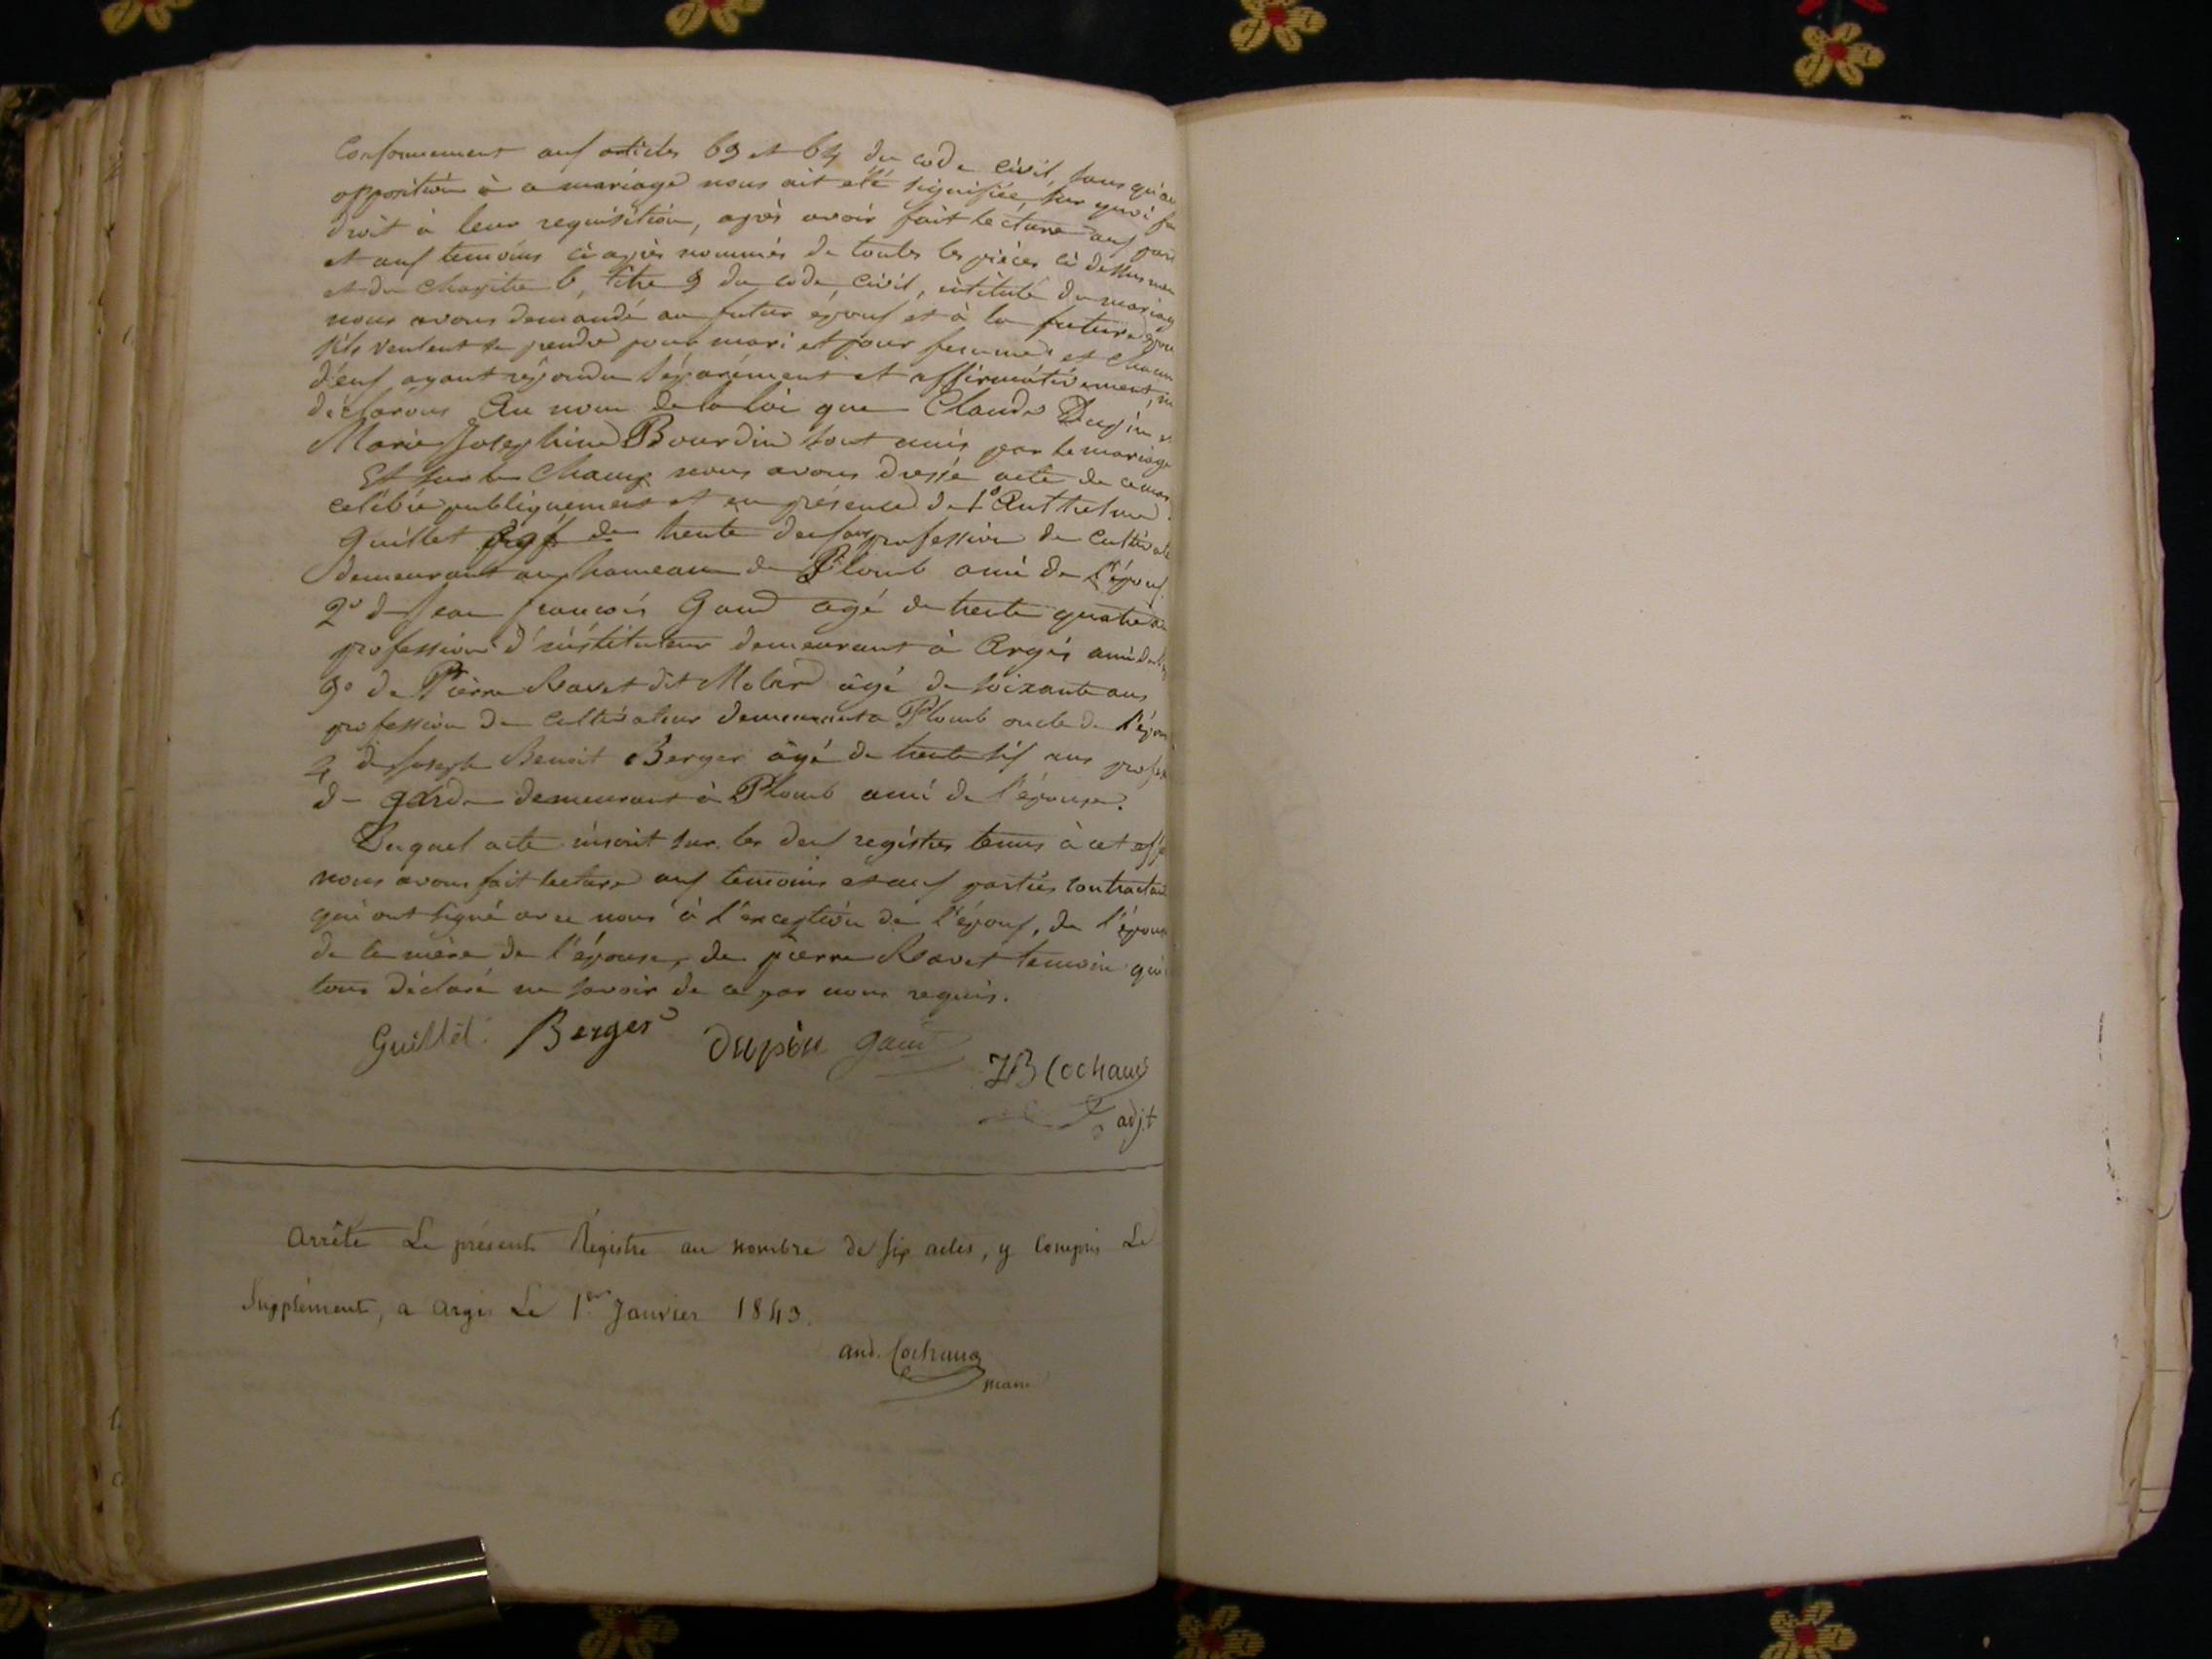 Conformement aux articles 63 et 64 du code civil, sans qu'au
opposition à ce mariage nous ait été signifiée, sur quoi fa
droit à leur requisition, après avoir fait lecture aux par
et aux temoins ci après nommés de toutes les pièces ci dessus men
et du chapitre 6, titre 3 du code civil, intitulé du mariag
nous avons demandé au futur epoux et à la future epou
s'ils veulent se prendre pour mari et pour femme, et chacun
d'eux ayant répondu séparément et affirmativement, n
déclarons Au nom de la loi que Claude Dupin e
Marie Josephine Bourdin sont unis par le mariage
Et sur le champ nous avons dressé acte de ce mar
celébré publiquement et en présence de 1º Anthelme
Guillet agé de trente deux ans profession de cultivate
demeurant au hameau de Plomb ami de l'époux
2º de Jean françois Gaud agé de trente quatre an
profession d'instituteur demeurant à Argis ami de l'ép
3º de Pierre Ravet dit Molard âgé de soixante ans
profession de cultivateur demeurant a Plomb oncle de l'épou
4 de Joseph Benoit Berger âgé de trente six ans profes
de garde demeurant à Plomb ami de l'épouse.
Duquel acte inscrit sur les deux registres tenus à cet effe
nous avons fait lecture aux temoins et aux parties contractan
qui ont signé avec nous à l'exception de l'époux, de l'épous
de la mère de l'épouse, de pierre Ravet temoin qui
tous déclaré ne savoir de ce par nous requis.
Guillet. Berger Dupin gaud
JB Cochaud
adj.t
Arrêté Le présent Registre au nombre de six actes, y Compris Le
Supplément, a argis Le 1er Janvier 1843.
and. Cochaud
maire